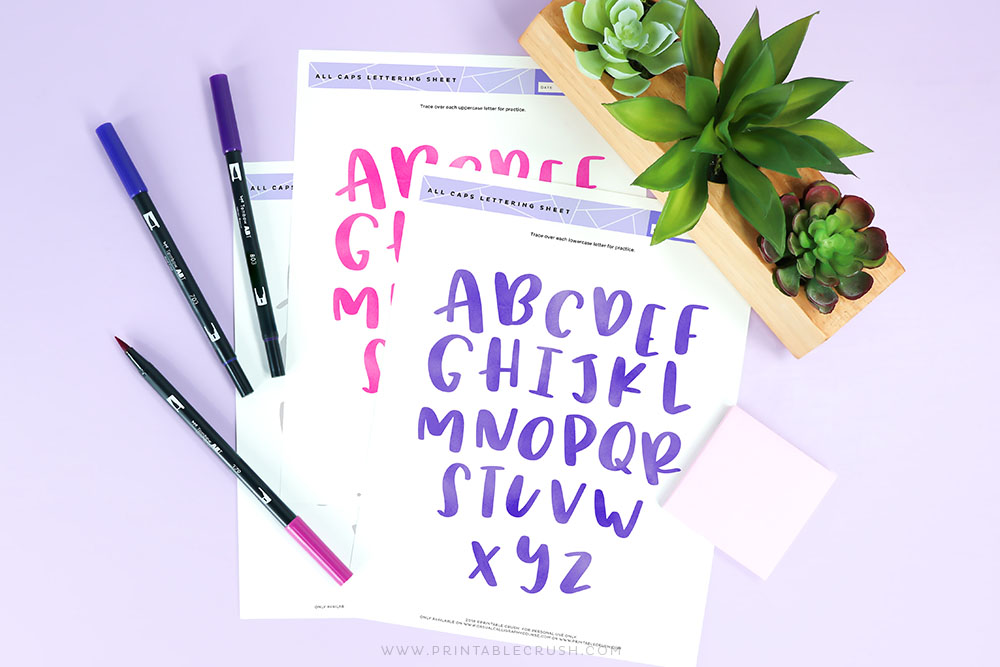 ALL CAPS LETTERING SHEET
DATE
Trace over each uppercase letter for practice.
ABCDEF
G
M
S
ALL CAPS
ONLY AVAILAB
ALL CAPS LETTERING SHEET
Trace over each lowercase letter for practice.
ABCDEF
GHIJKL
MNOPQR
STUVW
XYZ
PRINTABLE CRUSH FOR PERSONAL USE ONLY
ONLY AVAILABLE ON
Tombow ABT
703
Tombow ABT
803
Tombow
WWW.PRINTABLECRUSH.COM